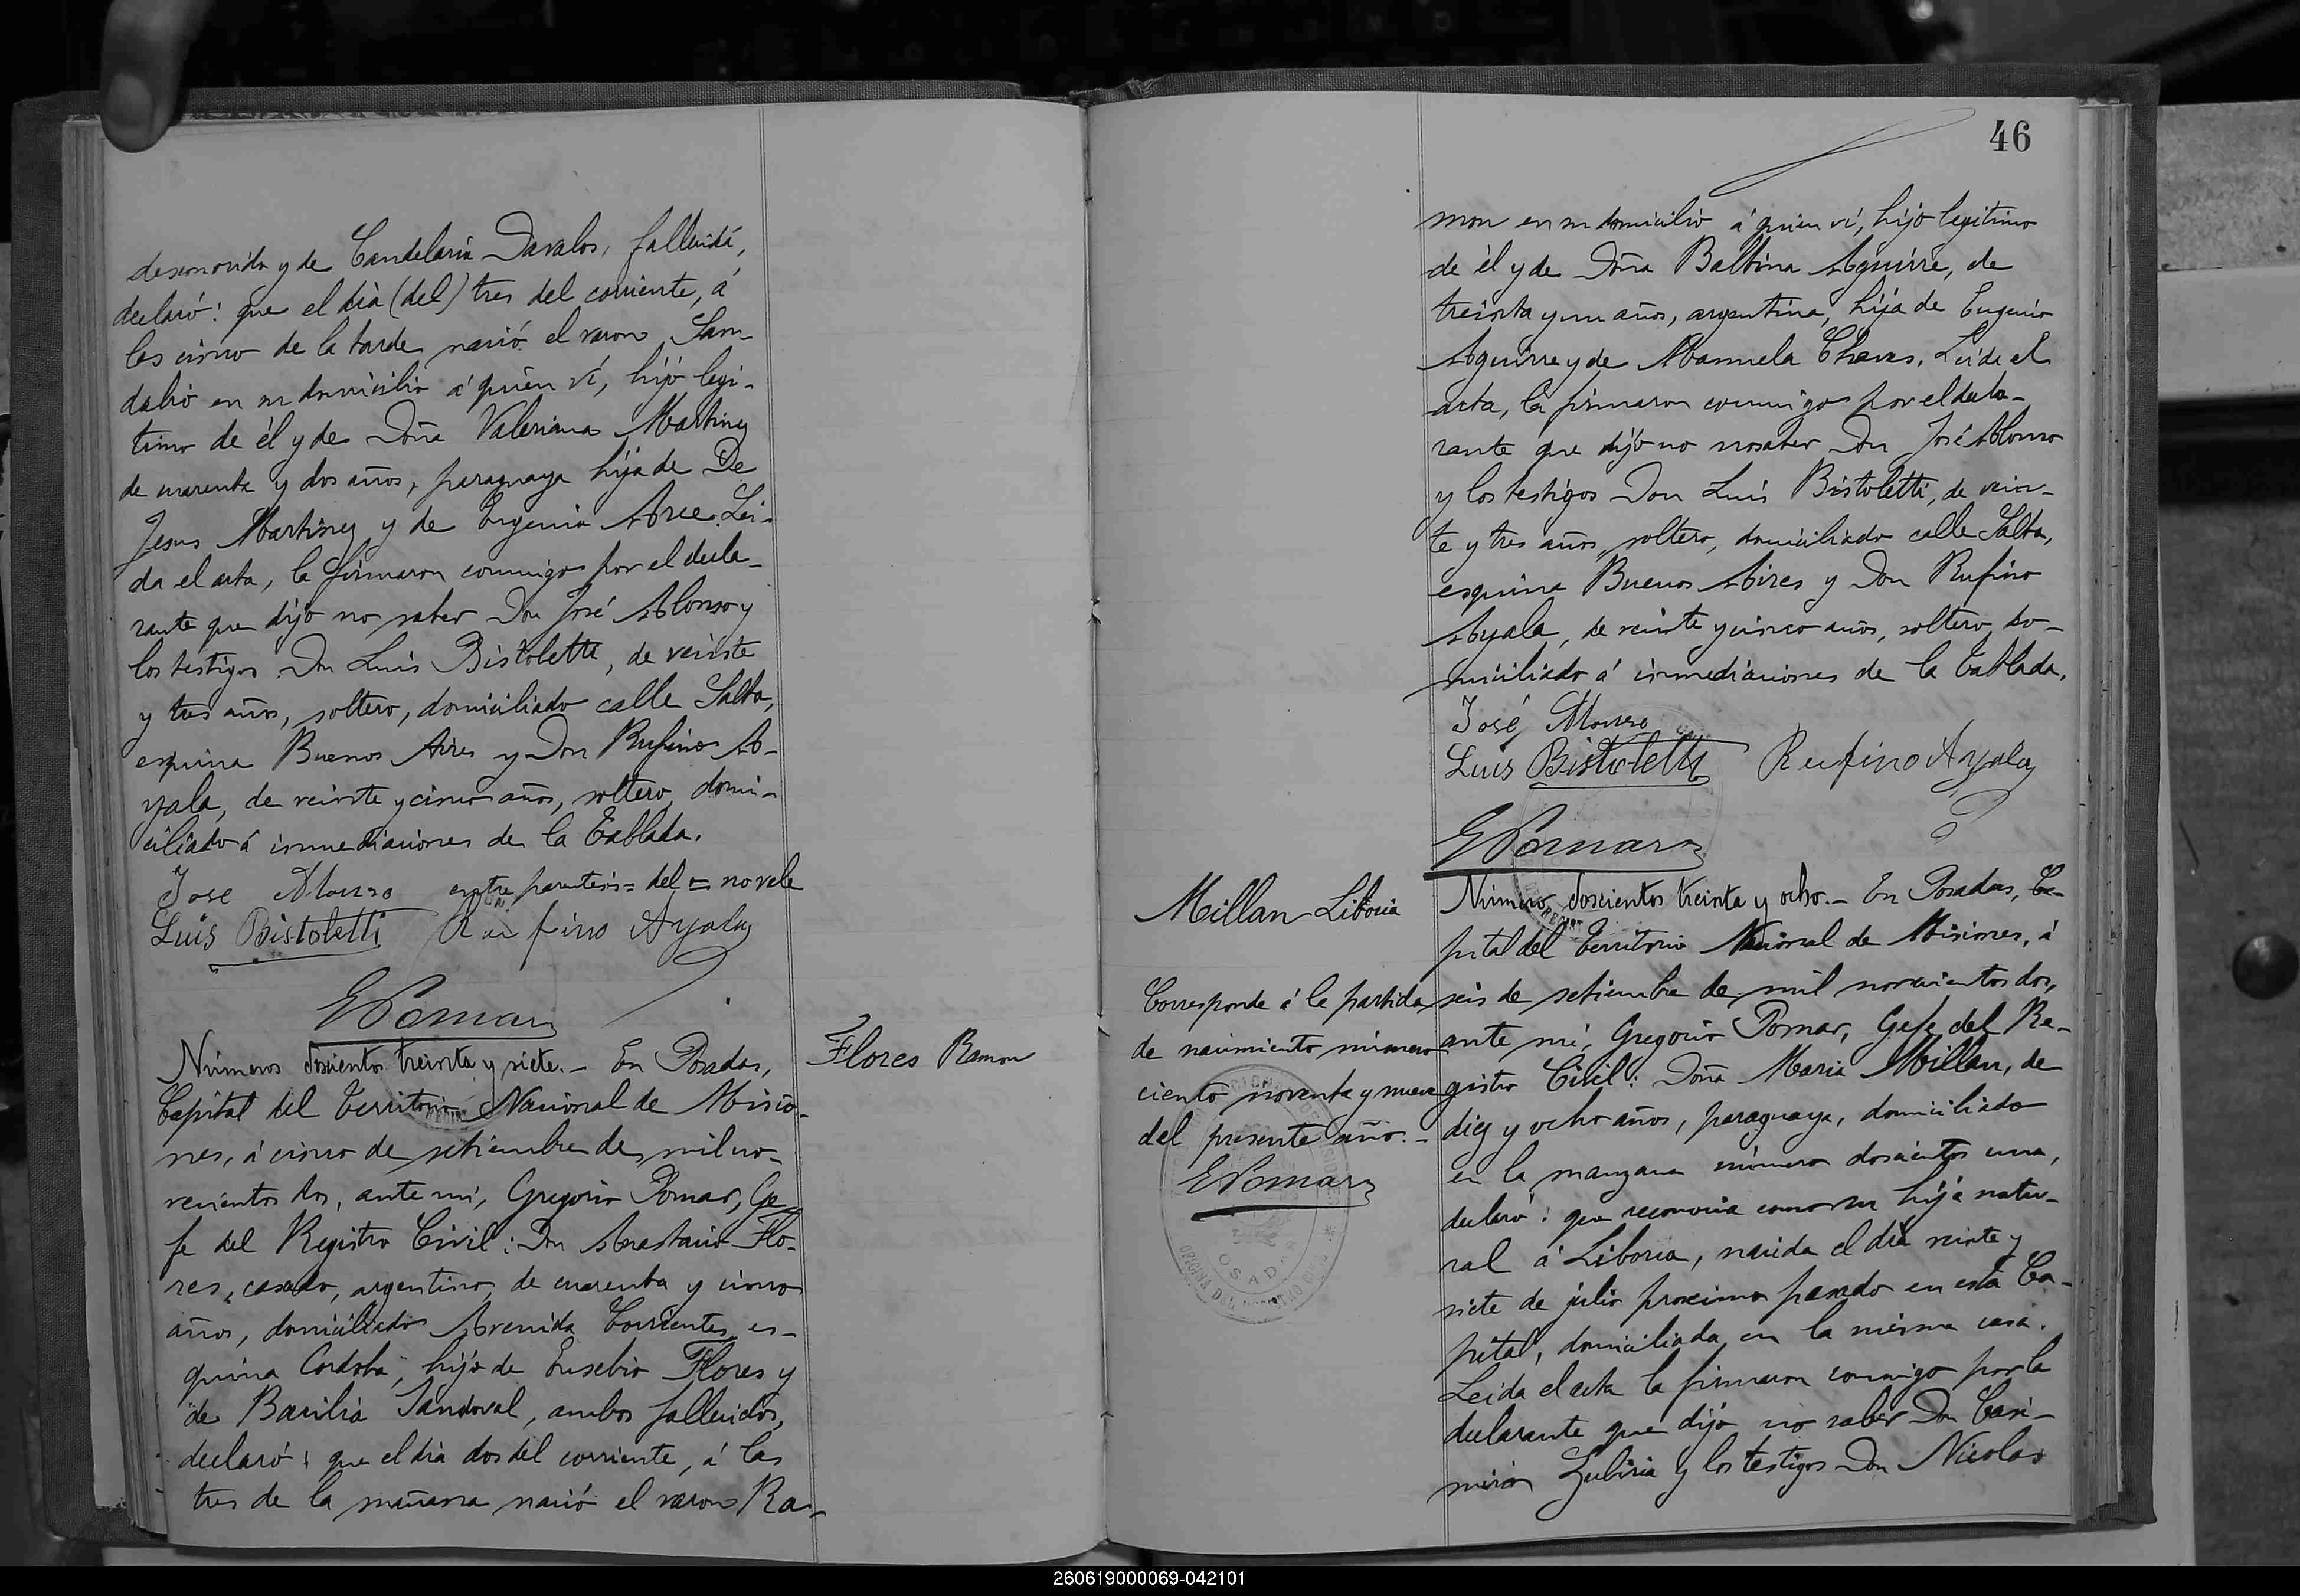 desconocido y de Candelaria Davalos, fallecida,
declaró: que el dia (del) tres del corriente, á
las cinco de la tarde nació el varon San-
dalio en su domicilio á quien ví, hijo legi-
timo de él y de Doña Valeriana Martinez
de cuarenta y dos años, paraguaya hija de De
Jesus Martinez y de Eugenia Arce. Lei-
da el acta, la firmaron conmigo por el decla-
rante que dijo no saber Don José Alonso y
los testigos Don Luis Bistoletti, de veinte
y tres años, soltero, domiciliado calle Salta,
esquina Buenos Aires y Don Rufino A-
yala, de veinte y cinco años, soltero, domi-
ciliado á inmediaciones de la Tablada.
Jose Alonso entre parentesis = del = no vale
Luis Bistoletti Rufino Ayala
GPomar
Número doscientos treinta y siete. - En Posadas,
Capital del Territorio Nacional de Misio-
nes, á cinco de setiembre de mil no-
vecientos dos, ante mí, Gregorio Pomar, Ge-
fe del Registro Civil: Don Anastacio Flo-
res, casado, argentino, de cuarenta y cinco
años, domiciliado Avenida Corrientes es-
quina Cordoba, hijo de Eusebio Flores y
de Basilia Sandoval, ambos fallecidos,
declaró: que el dia dos del corriente, á las
tres de la mañana nació el varon Ra-
Flores Ramon
46
mon en su domicilio á quien ví, hijo legitimo
de él y de Doña Balbina Aguirre, de
treinta y un años, argentina, hija de Eugenio
Aguirre y de Manuela Chaves. Leida el
acta, la firmaron conmigo por el decla-
rante que dijo no nosaber Don José Alonso
y los testigos Don Luis Bistoletti, de vein-
te y tres años, soltero, domiciliado calle Salta,
esquina Buenos Aires y Don Rufino
Ayala, de veinte y cinco años, soltero, do-
miciliado á inmediaciones de la Tablada.
José Alonso
Luis Bistoletti Rufino Ayala
GPomar
Millan Liboria
Corresponde á la partida
de nacimiento número
ciento noventa y nueve
del presente año. -
GPomar
Número doscientos treinta y ocho. - En Posadas, Ca-
pital del Territorio Nacional de Misiones, á
seis de setiembre de mil novecientos dos,
ante mí, Gregorio Pomar, Gefe del Re-
gistro Civil: Doña Maria Millan, de
diez y ocho años, paraguaya, domiciliada
en la manzana número doscientos una,
declaró: que reconocia como su hija natu-
ral á Liboria, nacida el dia veinte y
siete de julio proximo pasado en esta Ca-
pital, domiciliada en la misma casa.
Leida el acta la firmaron conmigo por la
declarante que dijo no saber Don Casi-
miro Zubiria y los testigos Don Nicolas
260619000069-042101